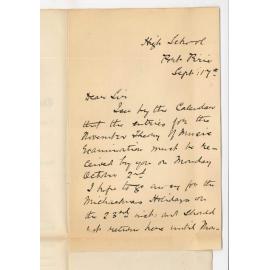 High School
Port Pirie
Sept: 17th
Dear Sir
I see by the Calendar
that the entries for the
November Theory of Music
Examination must be re-
ceived by you on Monday
October 2nd
I hope to go away for the
Michaelmas Holidays on
the 23rd inst: and should
not return here until Mon-